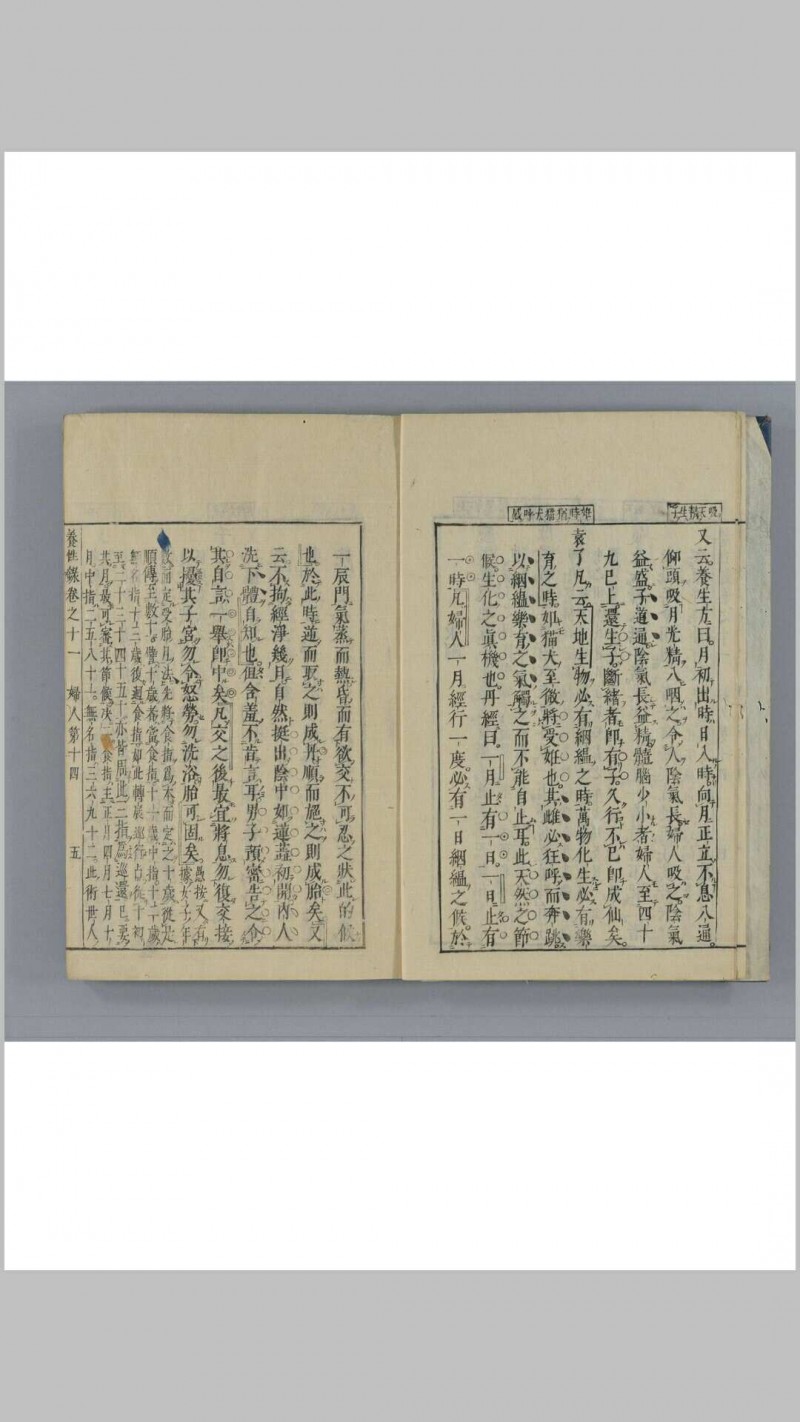 又云養生方曰月初出時日入時向月正立不息八通
仰頭吸月光精八咽之令人陰氣長婦人吸之陰氣
益盛子道通陰氣長益精髓腦少小者婦人至四十
九已上還生子斷緒者即有子久行不已即成仙矣
袁了凡云天地生物必有絪縕之時萬物化生必有樂
育之時如猫犬至微將受姙也其雌必狂呼而奔跳
以絪縕樂育之氣觸之而不能自止耳此天然之節
候生化之眞機也丹經曰一月止有一日一日止有
一時凡婦人一月經行一度必有一日絪縕之候於
一辰門氣蒸而熱昏而有欲交不可忍之狀此的候
也於此時逆而取之則成丹順而施之則成胎矣又
云不拘經淨幾日自然挺出陰中如蓮蕋初開內人
洗下體自知也但含羞不肯言耳男子預密告之令
其自言一舉即中矣凡交之後最宜將息勿復交接
以擾其子宮勿令怒勞勿洗浴胎可固矣愚按又有
至二十三十四十五十亦皆周此二指為巡還已要
月中指二五八十一無名指三六九十二此術世人
養性錄卷之十一　婦人第十四　五